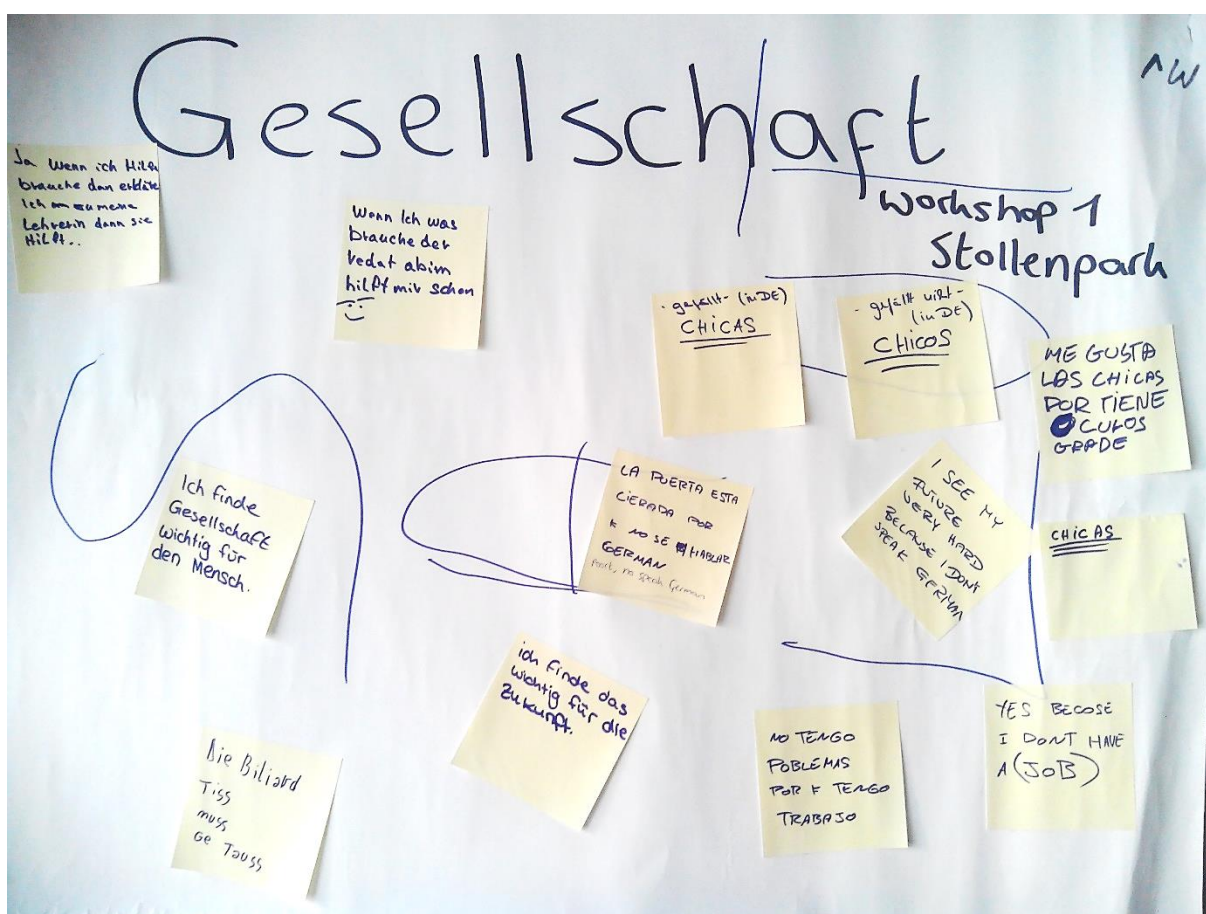 Gesellschaft
^W
workshop 1
Stollenpark
Ja Wenn ich Hilfe
brauche dan erkläre
Ich zu meine
Lehrerin dann sie
Hilft..
Wenn Ich was
brauche der
vedat abim
hilft mir schon
- gefällt - (in DE)
CHICAS
- gefällt nicht -
(in DE)
CHICOS
ME GUSTA
LAS CHICAS
POR TIENE
CULOS
GRADE
Ich finde
Gesellschaft
wichtig für
den Mensch.
LA PUERTA ESTA
CIERADA POR
K NO SE HABLAR
GERMAN
no speak German
I SEE MY
FUTURE
VERY HARD
BECAUSE I DON'T
SPEAK GERMAN
CHICAS
ich finde das
wichtig für die
Zukunft.
Die Biliard
Tiss
muss
Ge Tauss
NO TENGO
POBLEMAS
POR K TENGO
TRABAJO
YES BECOSE
I DONT HAVE
A (JOB)